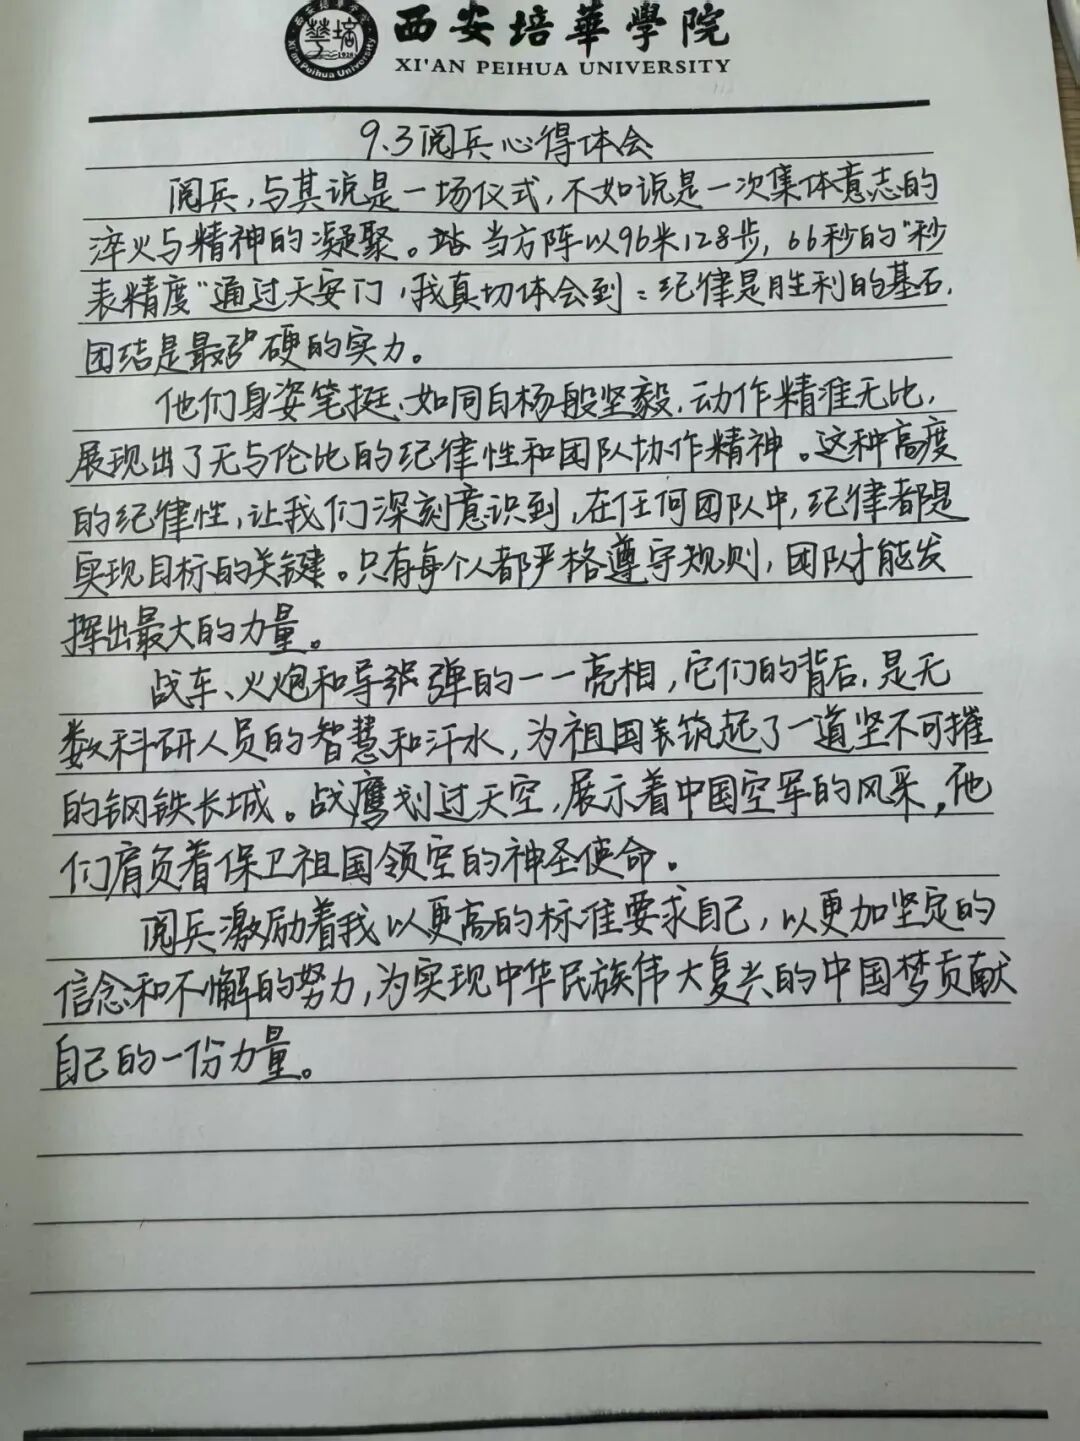 西安培華學院
XI'AN PEIHUA UNIVERSITY
9.3阅兵心得体会
阅兵,与其说是一场仪式,不如说是一次集体意志的
淬火与精神的凝聚。当方阵以96米128步,66秒的"秒
表精度"通过天安门,我真切体会到:纪律是胜利的基石,
团结是最硬的实力。
他们身姿笔挺、如同白杨般坚毅,动作精准无比,
展现出了无与伦比的纪律性和团队协作精神。这种高度
的纪律性,让我们深刻意识到,在任何团队中,纪律都是
实现目标的关键。只有每个人都严格遵守规则,团队才能发
挥出最大的力量。
战车、火炮和导弹的一一亮相,它们的背后,是无
数科研人员的智慧和汗水,为祖国筑起了一道坚不可摧
的钢铁长城。战鹰划过天空,展示着中国空军的风采,他
们肩负着保卫祖国领空的神圣使命。
阅兵激励着我以更高的标准要求自己,以更加坚定的
信念和不懈的努力,为实现中华民族伟大复兴的中国梦贡献
自己的一份力量。